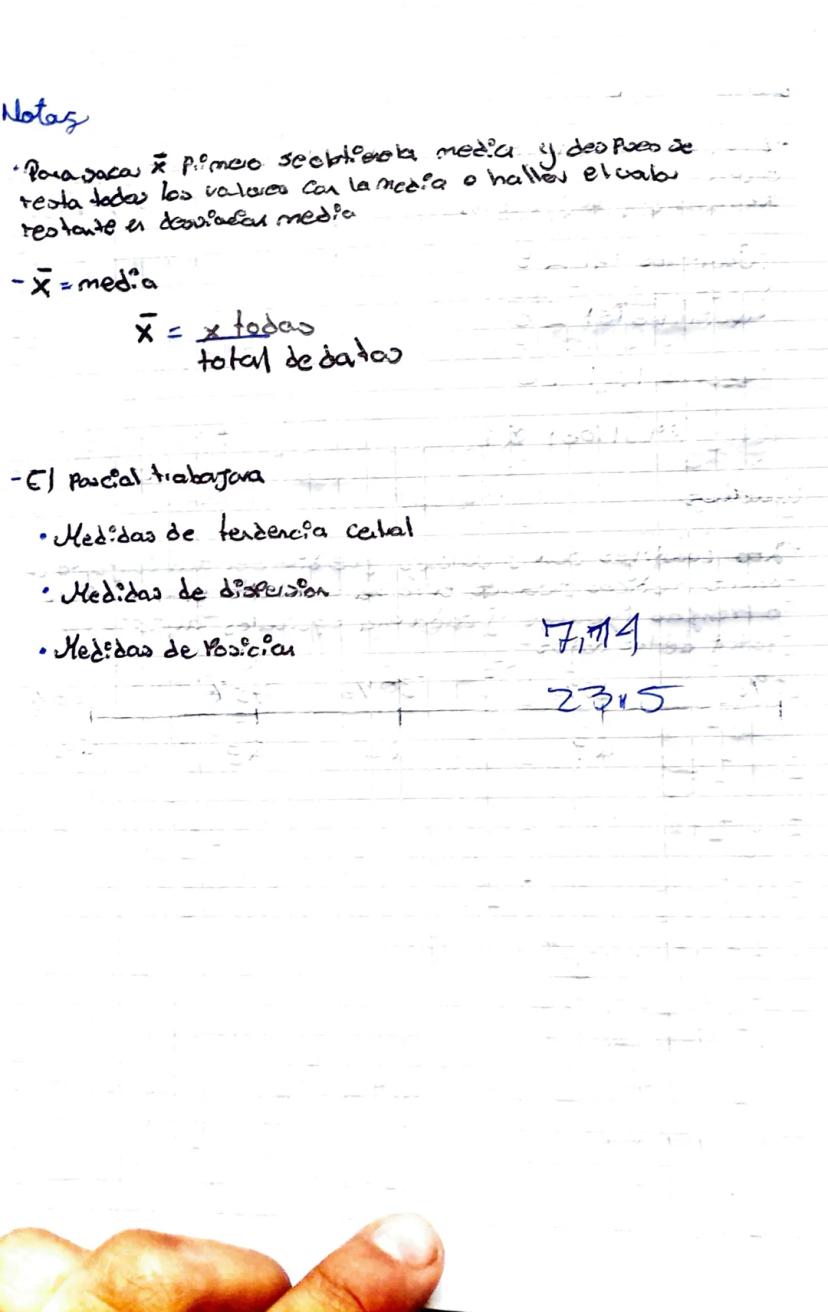 Notas
· Para sacar x̄ primero se obtiene la media y despues se
resta todos los valores con la media o hallar el valor
restante es desviacion media
- x̄ = media
x̄ = x todas
total de datos
- El parcial trabajara
· Medidas de tendencia cetral
· Medidas de dispersion
· Medidas de Posicion
23,5